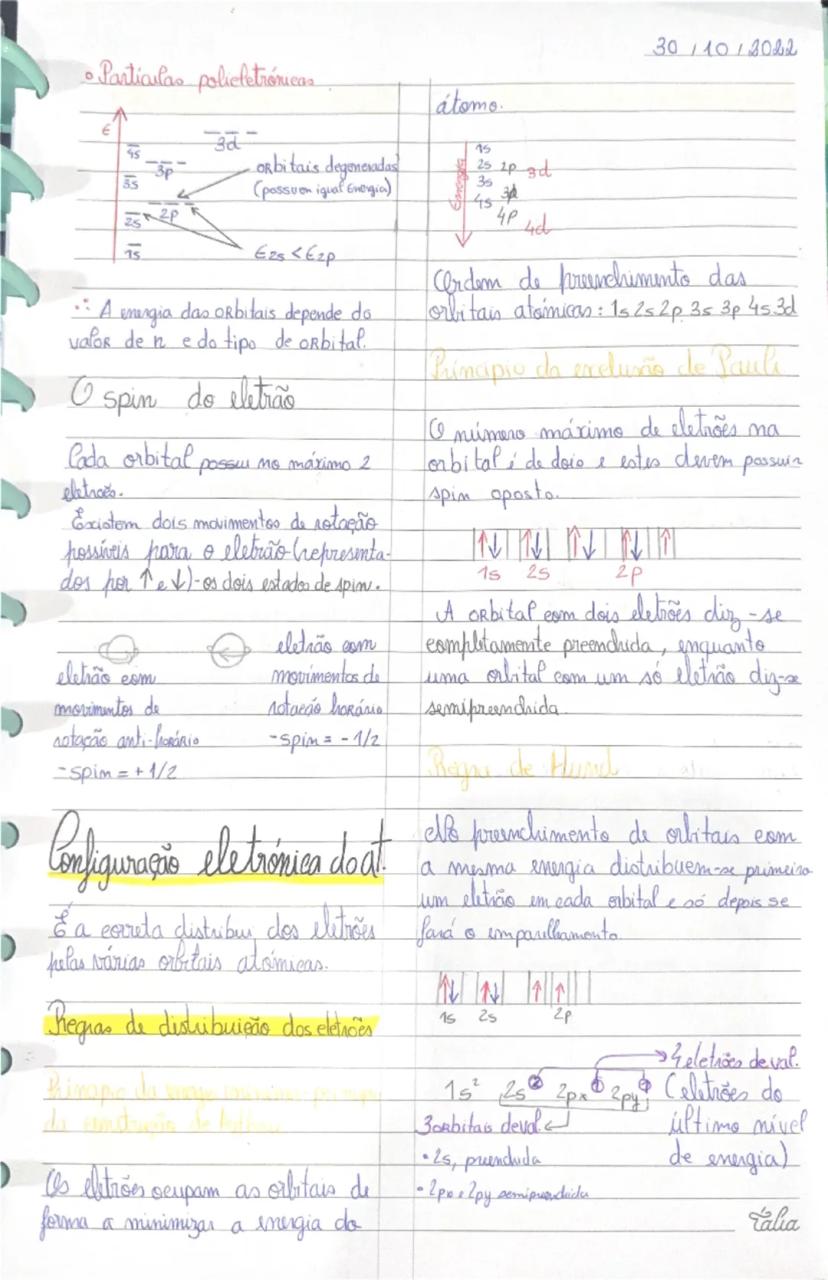 30/10/2022
• Particulas polieletrónicas
E
3d
4s
3p
3s
orbitais degeneradas
(possuem igual energia)
2p
2s
1s
E2s < E2p
∴ A energia das orbitais depende do
valor de n e do tipo de orbital.
O spin do eletrão
Cada orbital possui no máximo 2
eletrões.
Existem dois movimentos de rotação
possíveis para o eletrão (representa-
dos por ↑ e ↓) - os dois estados de spin.
eletrão com
movimentos de
rotação anti-horário
- spin = + 1/2
eletrão com
movimentos de
rotação horário
- spin = - 1/2
Configuração eletrónica do at.
É a correta distribui dos eletrões
pelas várias orbitais atómicas.
Regras de distribuição dos eletrões
Principio da energia minima principio
da construção de
Os eletrões ocupam as orbitais de
forma a minimizar a energia do
átomo.
Energia
1s
2s 2p 3d
3s 3p
4s 4p 4d
Ordem de preenchimento das
orbitais atómicas: 1s 2s 2p 3s 3p 4s 3d
Principio da exclusão de Pauli
O número máximo de eletrões na
orbital é de dois e estes devem possuir
spin oposto.
↑↓ ↑↓ ↑↓ ↑↓ ↑
1s 2s 2p
A orbital com dois eletrões diz-se
completamente preenchida, enquanto
uma orbital com um só eletrão diz-se
semipreenchida.
Regra de Hund
No preenchimento de orbitais com
a mesma energia distribuem-se primeiro
um eletrão em cada orbital e só depois se
fará o emparelhamento.
↑↓ ↑↓ ↑ ↑
1s 2s 2p
→ 4 eletrões de val.
1s² 2s² 2px¹ 2py¹ (eletrões do
3 orbitais deval último nível
• 2s, preenchida de energia)
• 2px e 2py semipreenchida
Tália